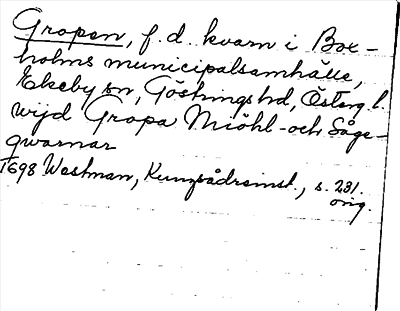 Gropen, f.d. kvarn i Box-
holms municipalsamhälle,
Ekeby sn, Göstrings hd, Österg. l.
wijd Gropa Miöhl- och Såge-
qwarnar
1698 Westman, Kunzrådrsinst., s. 231.
orig.